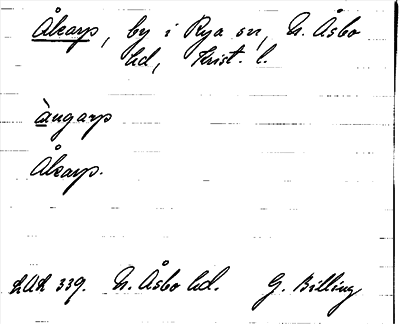 Åkarp, by i Rya sn, N. Åsbo
hd, Krist. l.
àngarp
Åkarp.
LAL 339. N. Åsbo hd. G. Billing